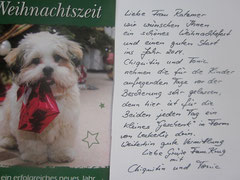 Weihnachtszeit
ein erfolgreiches neues Jahr
Liebe Frau
wir wünschen Ihnen
ein schönes Weihnachtsfest
und einen guten Start
ins Jahr 2014.
Chiquitin und Tonic
nehmen die für die Kinder
aufregenden Tage vor der
Bescherung sehr gelassen,
denn hier ist für die
Beiden jeden Tag ein
kleines "Geschenk" in Form
von Leckerlis drin.
Weiterhin gute
Liebe Grüße Frau
mit
Chiquitin und Tonic